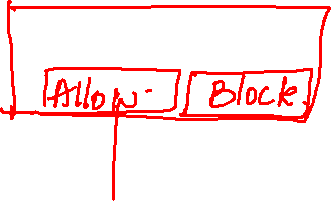 Allow Block